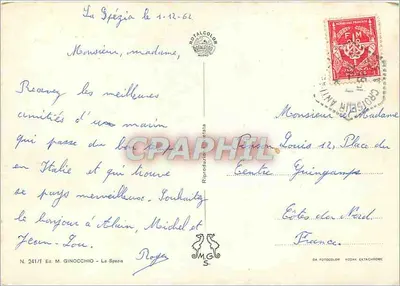 La Spézia le 1-12-62
ROTALCOLOR
Monsieur, madame,
Recevez les meilleures
amitiés d'un marin
qui passe du bon
en Italie et qui trouve
ce pays merveilleux. Souhaitez
le bonjour à Alain, Michel et
Jean-Lou.
Roger
N. 241/T Ed. M. GINOCCHIO - La Spezia
Riproduzione vietata
MG
S.
F M
CROISEUR ANTI
Monsieur et Madame
Louis 12, Place du
Centre Guingamps
Côtes du Nord
France.
CAPHIL
DA FOTOCOLOR KODAK EKTACHROME